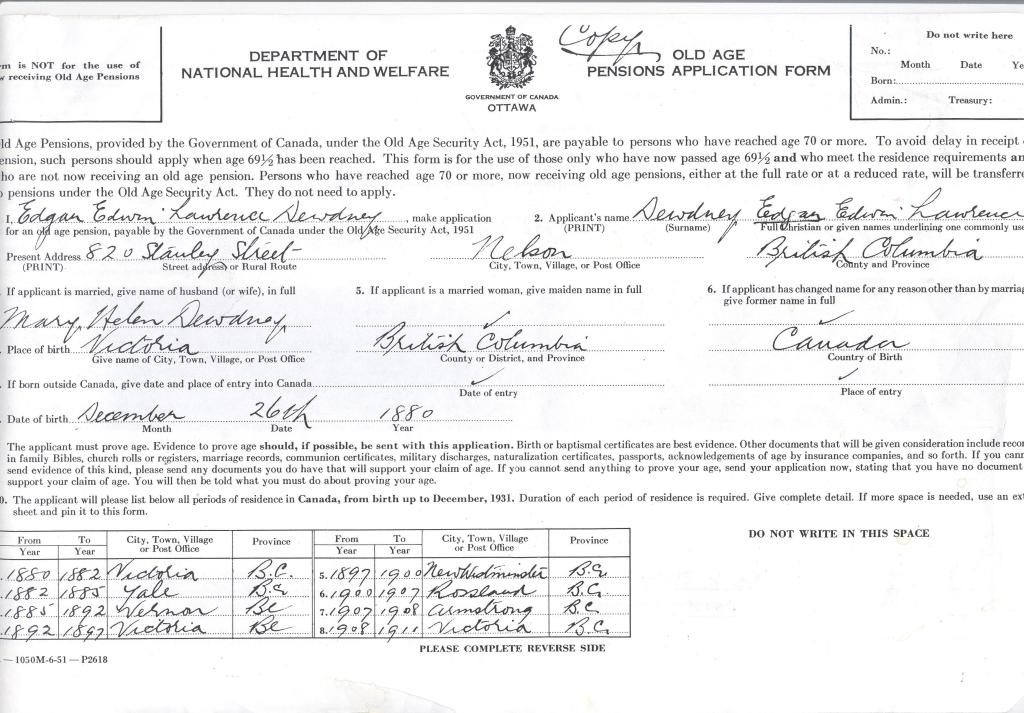 m is NOT for the use of
w receiving Old Age Pensions
DEPARTMENT OF
NATIONAL HEALTH AND WELFARE
GOVERNMENT OF CANADA
OTTAWA
Copy
OLD AGE
PENSIONS APPLICATION FORM
Do not write here
No.:
Month Date Ye
Born:
Admin.: Treasury:
ld Age Pensions, provided by the Government of Canada, under the Old Age Security Act, 1951, are payable to persons who have reached age 70 or more. To avoid delay in receipt
ension, such persons should apply when age 69½ has been reached. This form is for the use of those only who have now passed age 69½ and who meet the residence requirements an
ho are not now receiving an old age pension. Persons who have reached age 70 or more, now receiving old age pensions, either at the full rate or at a reduced rate, will be transferre
o pensions under the Old Age Security Act. They do not need to apply.
I, Edgar Edwin Lawrence Dewdney, make application 2. Applicant's name Dewdney Edgar Edwin Lawrence
for an old age pension, payable by the Government of Canada under the Old Age Security Act, 1951 (PRINT) (Surname) Full Christian or given names underlining one commonly use
Present Address 820 Stanley Street Nelson British Columbia
(PRINT) Street address or Rural Route City, Town, Village, or Post Office County and Province
If applicant is married, give name of husband (or wife), in full 5. If applicant is a married woman, give maiden name in full 6. If applicant has changed name for any reason other than by marria
give former name in full
Mary Helen Dewdney ✓ ✓
Place of birth Victoria British Columbia Canada
Give name of City, Town, Village, or Post Office County or District, and Province Country of Birth
If born outside Canada, give date and place of entry into Canada ✓ ✓
Date of entry Place of entry
Date of birth December 26th 1880
Month Date Year
The applicant must prove age. Evidence to prove age should, if possible, be sent with this application. Birth or baptismal certificates are best evidence. Other documents that will be given consideration include recor
in family Bibles, church rolls or registers, marriage records, communion certificates, military discharges, naturalization certificates, passports, acknowledgements of age by insurance companies, and so forth. If you cann
send evidence of this kind, please send any documents you do have that will support your claim of age. If you cannot send anything to prove your age, send your application now, stating that you have no document
support your claim of age. You will then be told what you must do about proving your age.
0. The applicant will please list below all periods of residence in Canada, from birth up to December, 1931. Duration of each period of residence is required. Give complete detail. If more space is needed, use an ext
sheet and pin it to this form.
DO NOT WRITE IN THIS SPACE
From To City, Town, Village Province From To City, Town, Village Province
Year Year or Post Office Year Year or Post Office
1880 1882 Victoria B.C. 5. 1897 1900 New Westminster B.C.
1882 1885 Yale B.C. 6. 1900 1907 Rossland B.C.
1885 1892 Vernon BC 7. 1907 1908 Armstrong B.C.
1892 1897 Victoria BC 8. 1908 1911 Victoria B.C.
PLEASE COMPLETE REVERSE SIDE
— 1050M-6-51 — P2618